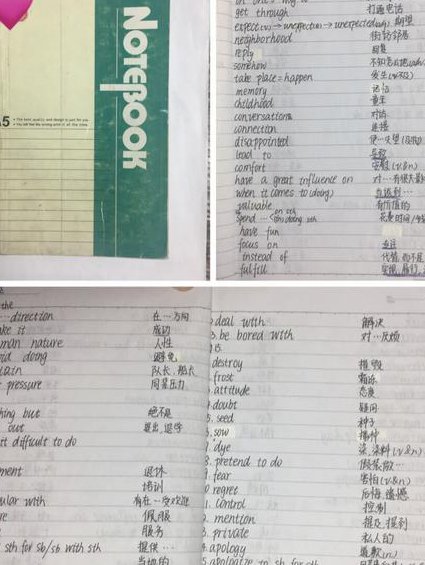 NOTEBOOK
A5
get through 打通电话
expect(v) → unexpected(adj) → unexpectedly(adv) 期望
neighborhood 街坊邻居
reply 回复
somehow
take place = happen 发生(v不及)
memory 记忆
childhood 童年
conversation 对话
connection 连接
disappointed
lead to 导致
comfort 安慰(v&n)
have a great influence on 对…有很大
when it comes to (doing) 当谈到…
valuable 有价值的
spend … on sth
(in) doing sth 花费时间/
have fun
focus on 专注
instead of 代替,而不是
fulfill 实现,履行
the
…direction 在…方向
成功
man nature 人性
doing 避免
队长,船长
pressure 同辈压力
ing but 绝不是
out 退出,退学
difficult to do
ment 退休
培训
ular with 有在…受欢迎
佩服
服务
sth for sb/sb with sth 提供…
当地的
deal with 解决
be bored with 对…厌烦
destroy 摧毁
frost 霜冻
attitude 态度
doubt 疑问
seed 种子
sow 播种
dye 染,染料(v&n)
pretend to do 假装做…
fear 害怕(v&n)
regret 后悔 遗憾
control 控制
mention 提及 提到
private 私人的
apology 道歉(n)
apologize to sb for sth